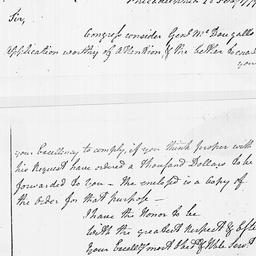 Philadelphia
Sir,
Congress consider Genl McDougalls
application worthy of attention & the better to
you
your Excellency to comply, if you think proper with
his Request have ordered a thousand Dollars to be
forwarded to you – the enclosed is a copy of
the order for that purpose –
I have the Honor to be
with the greatest Respect &
your Excellys most Obedt & Hble Servt